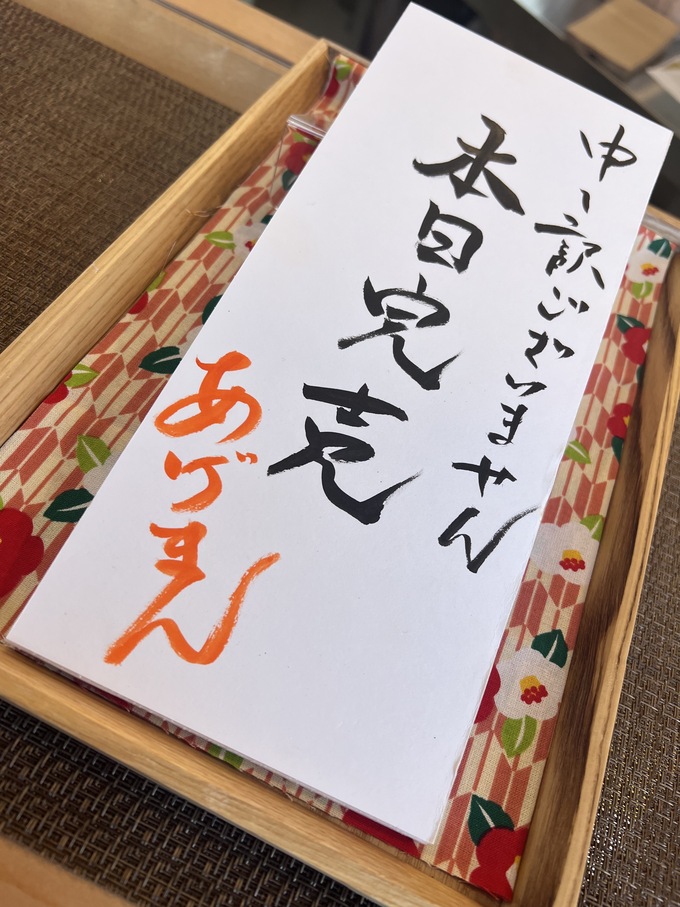 申し訳ございません
本日完売
あげまん